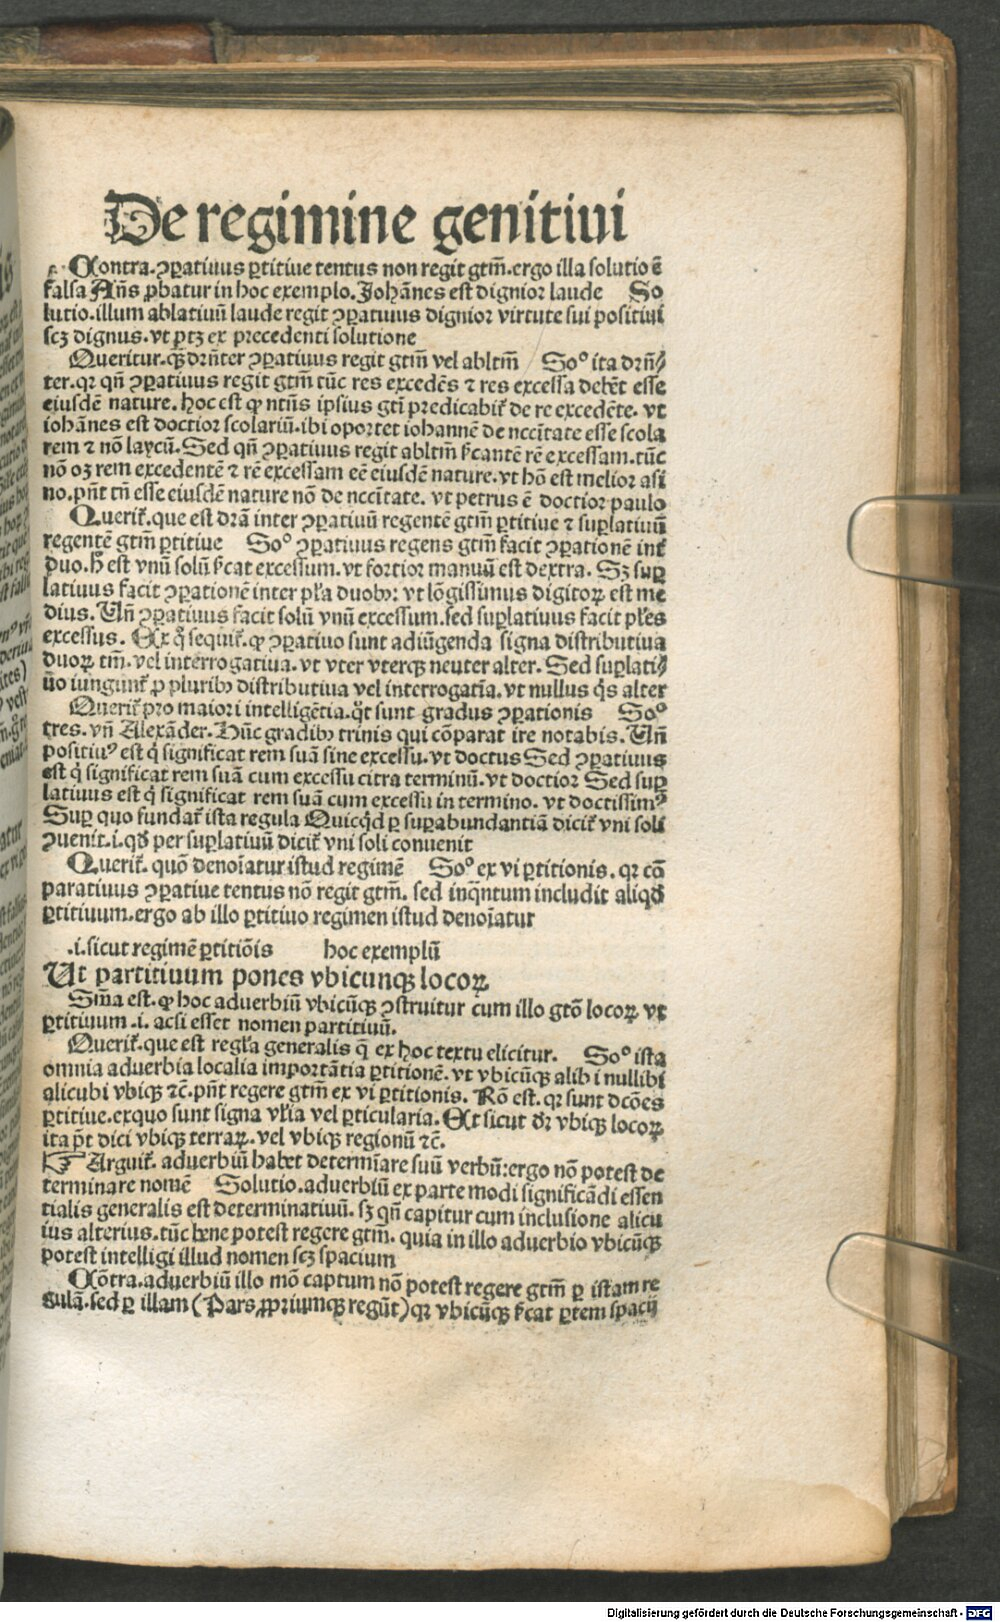 De regimine genitiui
Contra.ꝯꝑatiuus ꝑtitiue tentus non regit gtm̄.ergo illa solutio ē
falsa Añs ꝓbatur in hoc exemplo.Johānes est dignior laude So
lutio.illum ablatiuū laude regit ꝯꝑatiuus dignior virtute sui positiui
scꝫ dignus.vt ptꝫ ex precedenti solutione
Queritur.qͣ drn̄ter ꝯꝑatiuus regit gtm̄ vel abltm̄ Soº ita drn̄⸗
ter.qꝛ qn̄ ꝯꝑatiuus regit gtm̄ tūc res excedēs ⁊ res excessa debēt esse
eiusdē nature.hoc est ꝙ ntn̄s ipsius gti predicabiť de re excedēte.vt
iohānes est doctior scolariū.ibi oportet iohannē de nccītate esse scola
rem ⁊ nō laycū.Sed qn̄ ꝯꝑatiuus regit abltm̄ ſ̄cantē rē excessam.tūc
nō oꝫ rem excedentē ⁊ rē excessam eē eiusdē nature.vt hō est melior asi
no.pn̄t tn̄ esse eiusdē nature nō de nccītate. vt petrus ē doctior paulo
Queriť.que est drā inter ꝯꝑatiuū regentē gtm̄ ꝑtitiue ⁊ suꝑlatiuū
regentē gtm̄ ꝑtitiue Soº ꝯꝑatiuus regens gtm̄ facit ꝯꝑationē inť
duo.hͦ est vnū solū ſ̄cat excessum.vt fortior manuū est dextra. Sꝫ suꝑ
latiuus facit ꝯꝑationē inter pľa duobꝰ: vt lōgissimus digitoꝝ est me
dius. Vn̄ ꝯꝑatiuus facit solū vnū excessum.sed suꝑlatiuus facit pľes
excessus. Ex qͦ sequiť.ꝙ ꝯꝑatiuo sunt adiūgenda signa distributiua
duoꝝ tm̄.vel interrogatiua.vt vter vterqꝫ neuter alter. Sed suꝑlati⸗
uo iunguntͬ ꝓ pluribꝰ distributiua vel interrogatīa.vt nullus qͥs alter
Queriť pro maiori intelligētia.qͦt sunt gradus ꝯꝑationis Soº
tres. vn̄ Alexāder.Hūc gradibꝰ trinis qui cōparat ire notabis.Vn̄
positiuꝰ est qͥ significat rem suā sine excessu.vt doctus Sed ꝯꝑatiuus
est qͥ significat rem suā cum excessu citra terminū.vt doctior Sed suꝑ
latiuus est qͥ significat rem suā cum excessu in termino. vt doctissimꝰ
Suꝑ quo fundať ista regula Quicqͥd ꝑ suꝑabundantiā diciť vni soli
ꝯuenit.i.qd̄ per suꝑlatiuū diciť vni soli conuenit
Queriť. quō denoīatur istud regimē Soº ex vi ꝑtitionis.qꝛ cō
paratiuus ꝯꝑatiue tentus nō regit gtm̄. sed inqͣntum includit aliqd̄
ꝑtitiuum.ergo ab illo ꝑtitiuo regimen istud denoīatur
.i.sicut regimē ꝑtitiōis hoc exemplū
Ut partitiuum pones vbicunqꝫ locoꝝ
Sm̄a est.ꝙ hoc aduerbiū vbicūqꝫ ꝯstruitur cum illo gtō locoꝝ vt
ꝑtitiuum.i. acsi esset nomen partitiuū.
Queriť.que est regľa generalis q̄ ex hoc textu elicitur. Soº ista
omnia aduerbia localia importātia ꝑtitionē.vt vbicūqꝫ alib i nullibi
alicubi vbiqꝫ ⁊c̄.pn̄t regere gtm̄ ex vi ꝑtitionis. Rō est.qꝛ sunt dcōes
ꝑtitiue.exquo sunt signa vľia vel ꝑticularia.Et sicut dꝛ̄ vbiqꝫ locoꝝ
ita pt̄ dici vbiqꝫ terraꝝ.vel vbiqꝫ regionū ⁊c̄.
☞ Arguiť. aduerbiū habet determīare suū verbū:ergo nō potest de
terminare nomē Solutio.aduerbiū ex parte modi significādi essen
tialis generalis est determinatiuū. sꝫ qn̄ capitur cum inclusione alicu
ius alterius.tūc bene potest regere gtm̄. quia in illo aduerbio vbicūqꝫ
potest intelligi illud nomen scꝫ spacium
Cōtra.aduerbiū illo mō captum nō potest regere gtm̄ ꝑ istam re
gulā.sed ꝑ illam (Pars ꝓpriumqꝫ regūt) qꝛ vbicūqꝫ ſ̄cat ꝑtem spacij
Digitalisierung gefördert durch die Deutsche Forschungsgemeinschaft - DFG